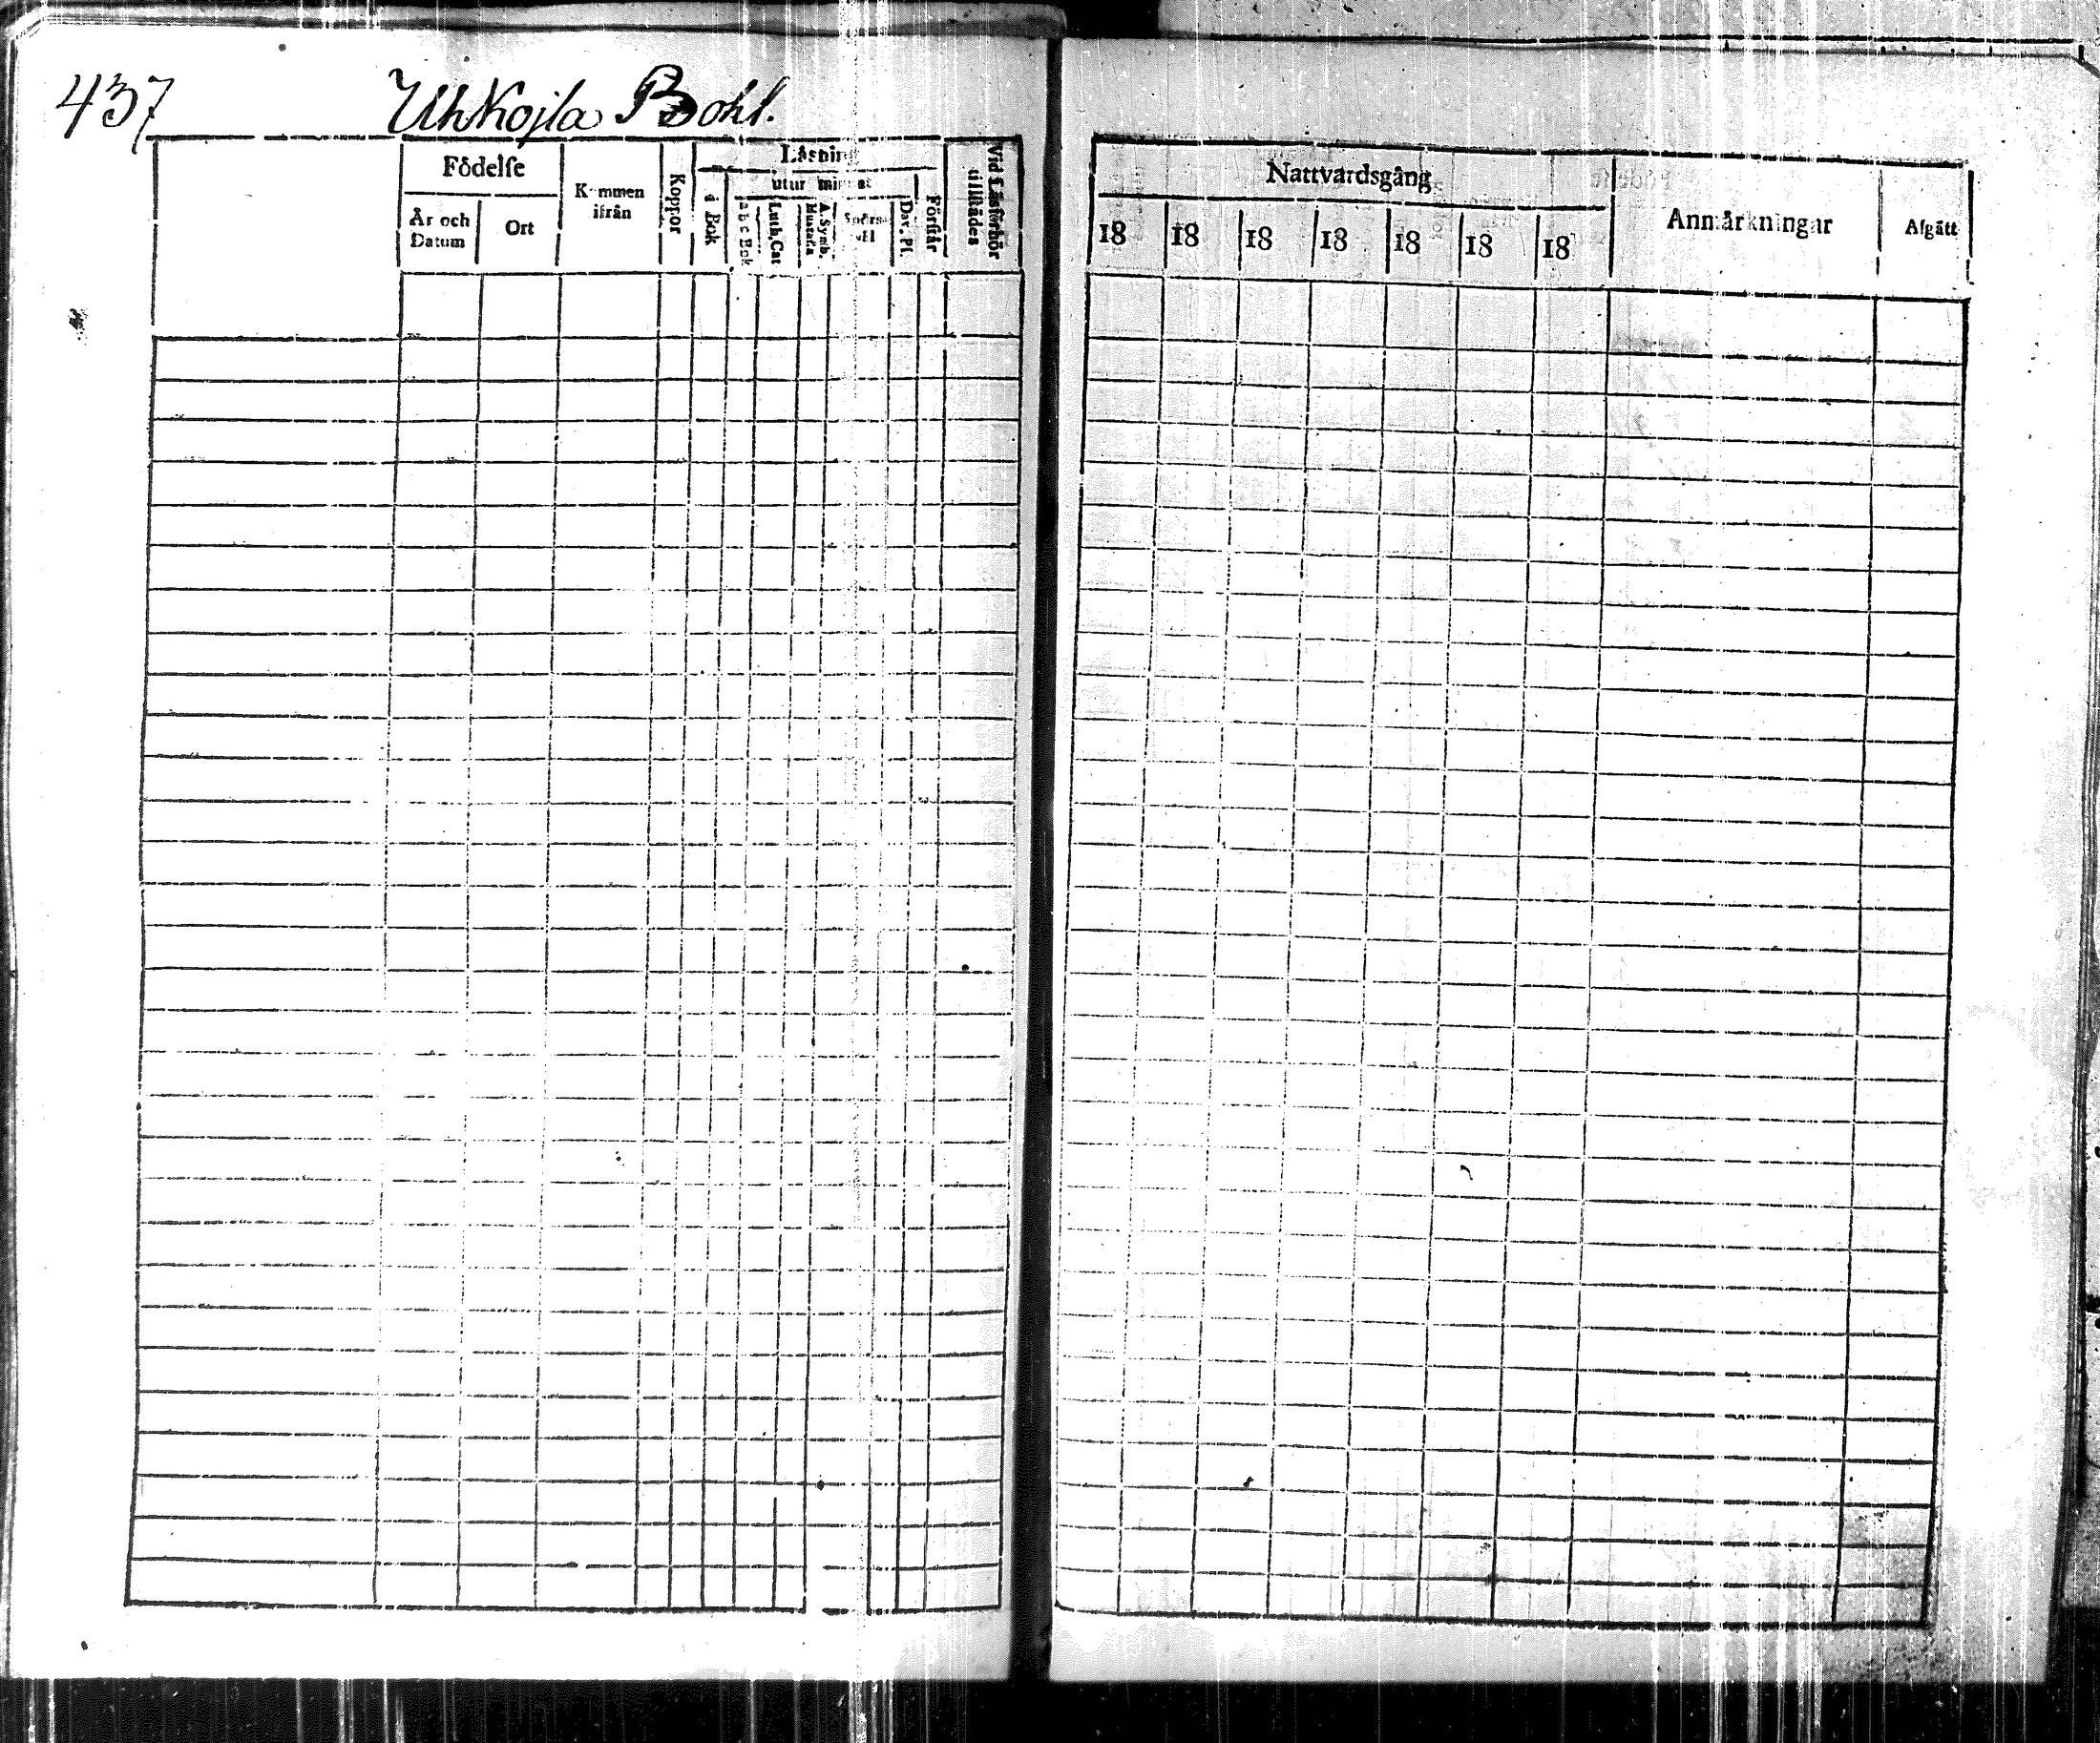 437 Uhkojla Bohl.
Födelse
År och Datum
Ort
Kommen ifrån
Koppor
Läsning
å Bok
utur minnet
a b c Bok
Luth. Cat
Hustafla
A. Symb.
Spörsmål
Dav. Pf.
Förstår
Vid Läsförhör tillstädes
Nattvardsgång
18 18 18 18 18 18 18
Anmärkningar
Afgått